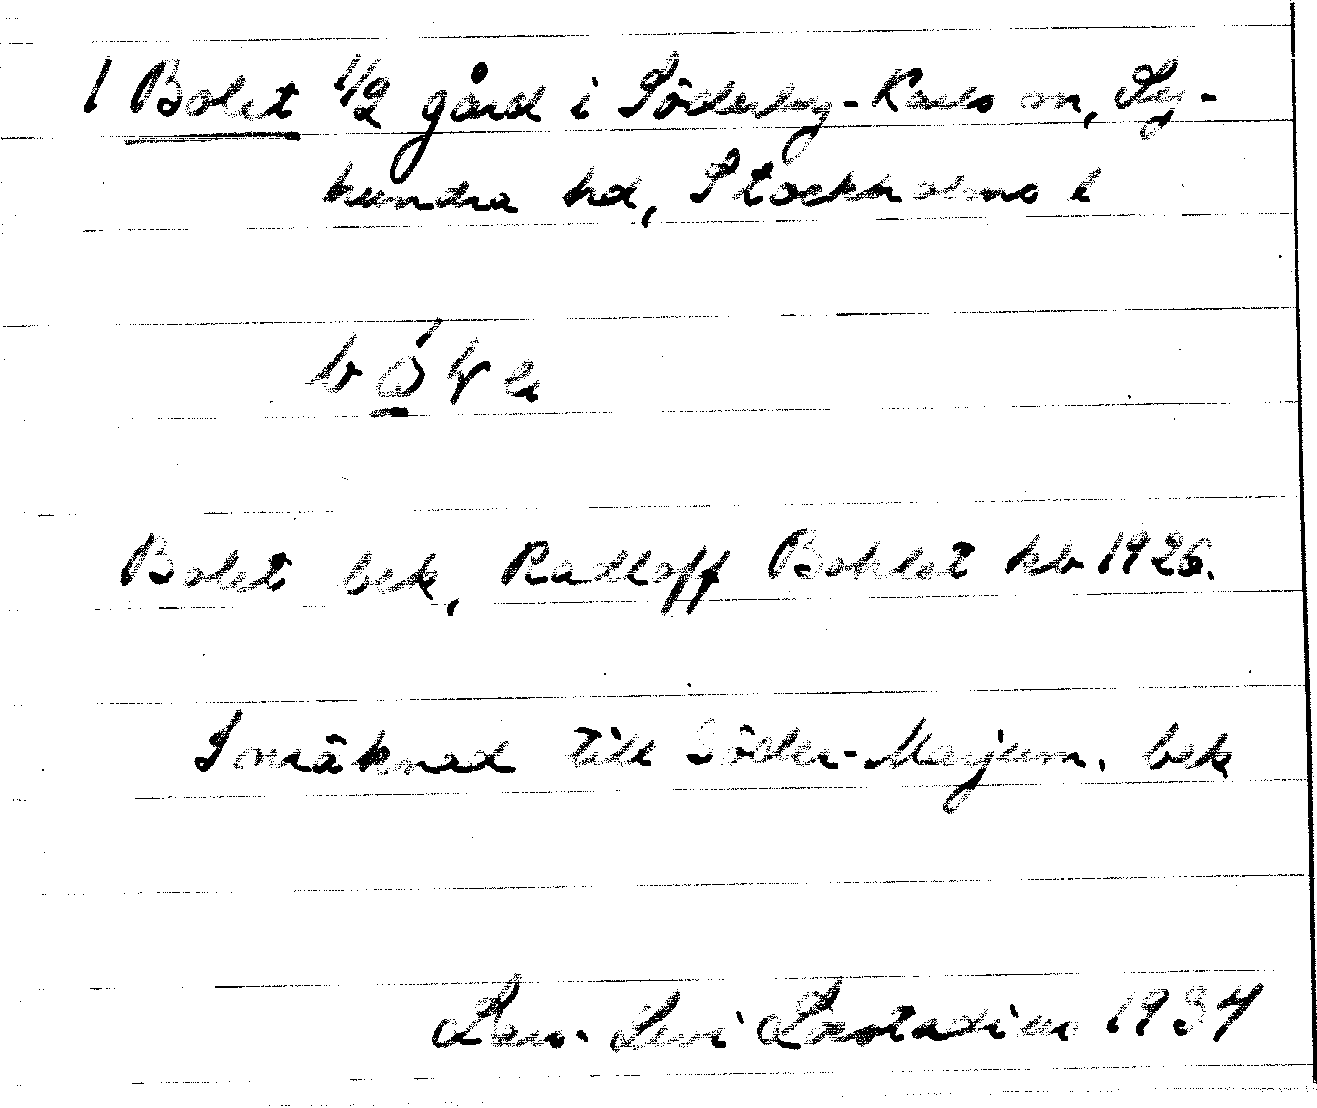 1 Bolet 1/2 gård i Söderby-Karls sn, Ly-
hundra hd, Stockholms l
Bolet bek, Radloff Bohlet kb 1926.
Inräknad till Söder-Marjum. bek
Lars-Levi Læstadius 1934